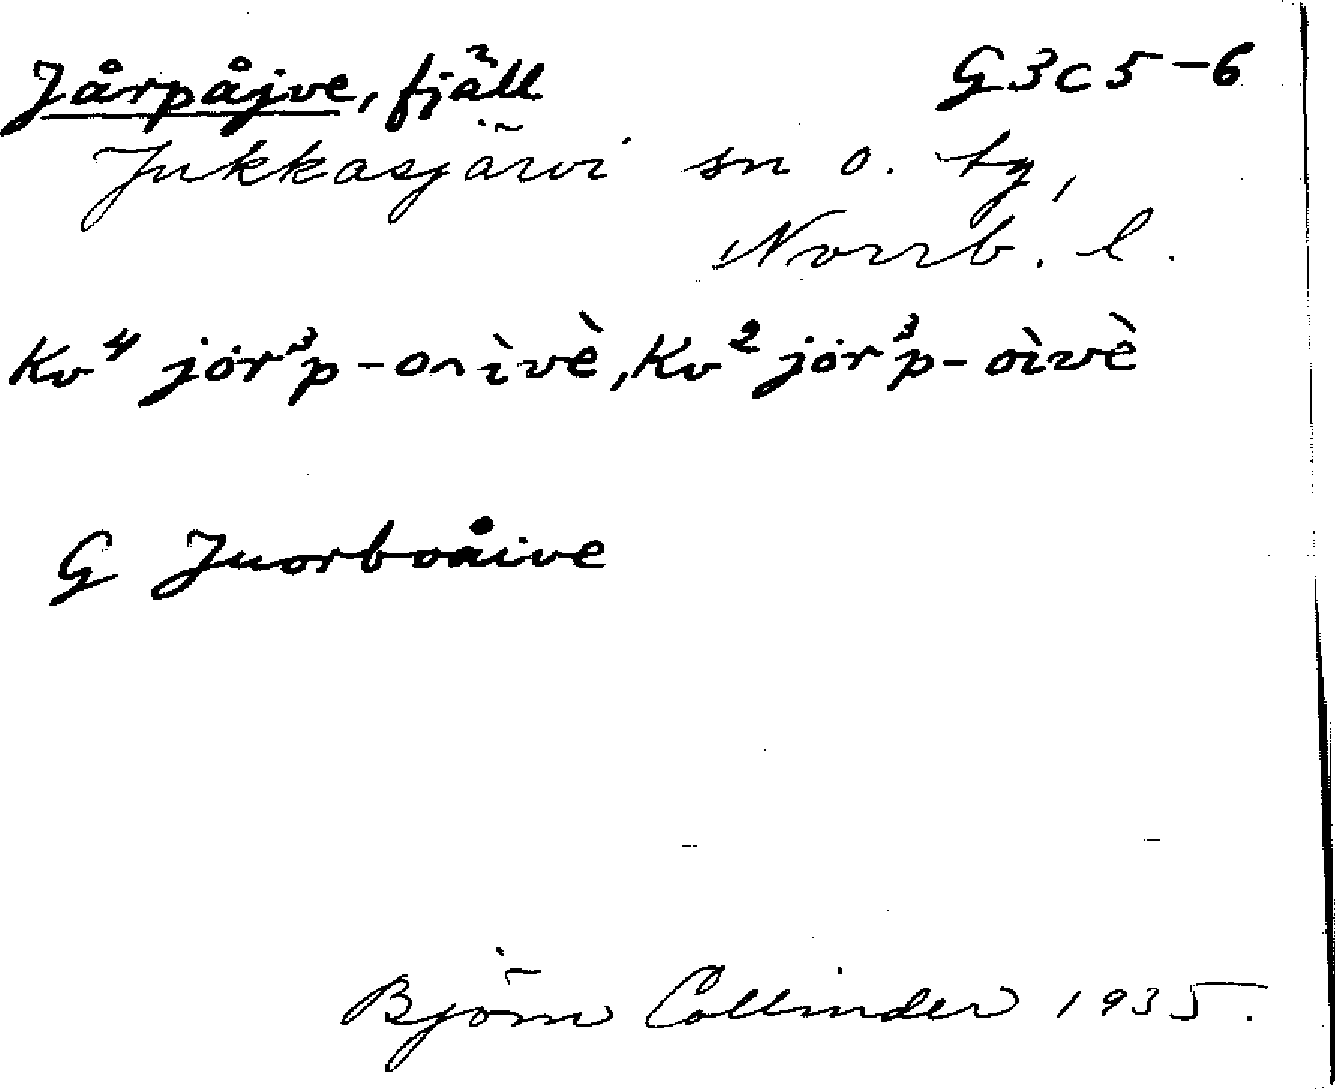 Jårpåjve, fjäll G3c5-6
Jukkasjärvi sn o. tg,
Norrb. l.
Kv⁴ jor³p-oʌìvè, Kv² jor³p-oìvè
G Juorboåive
Björn Collinder 1935.